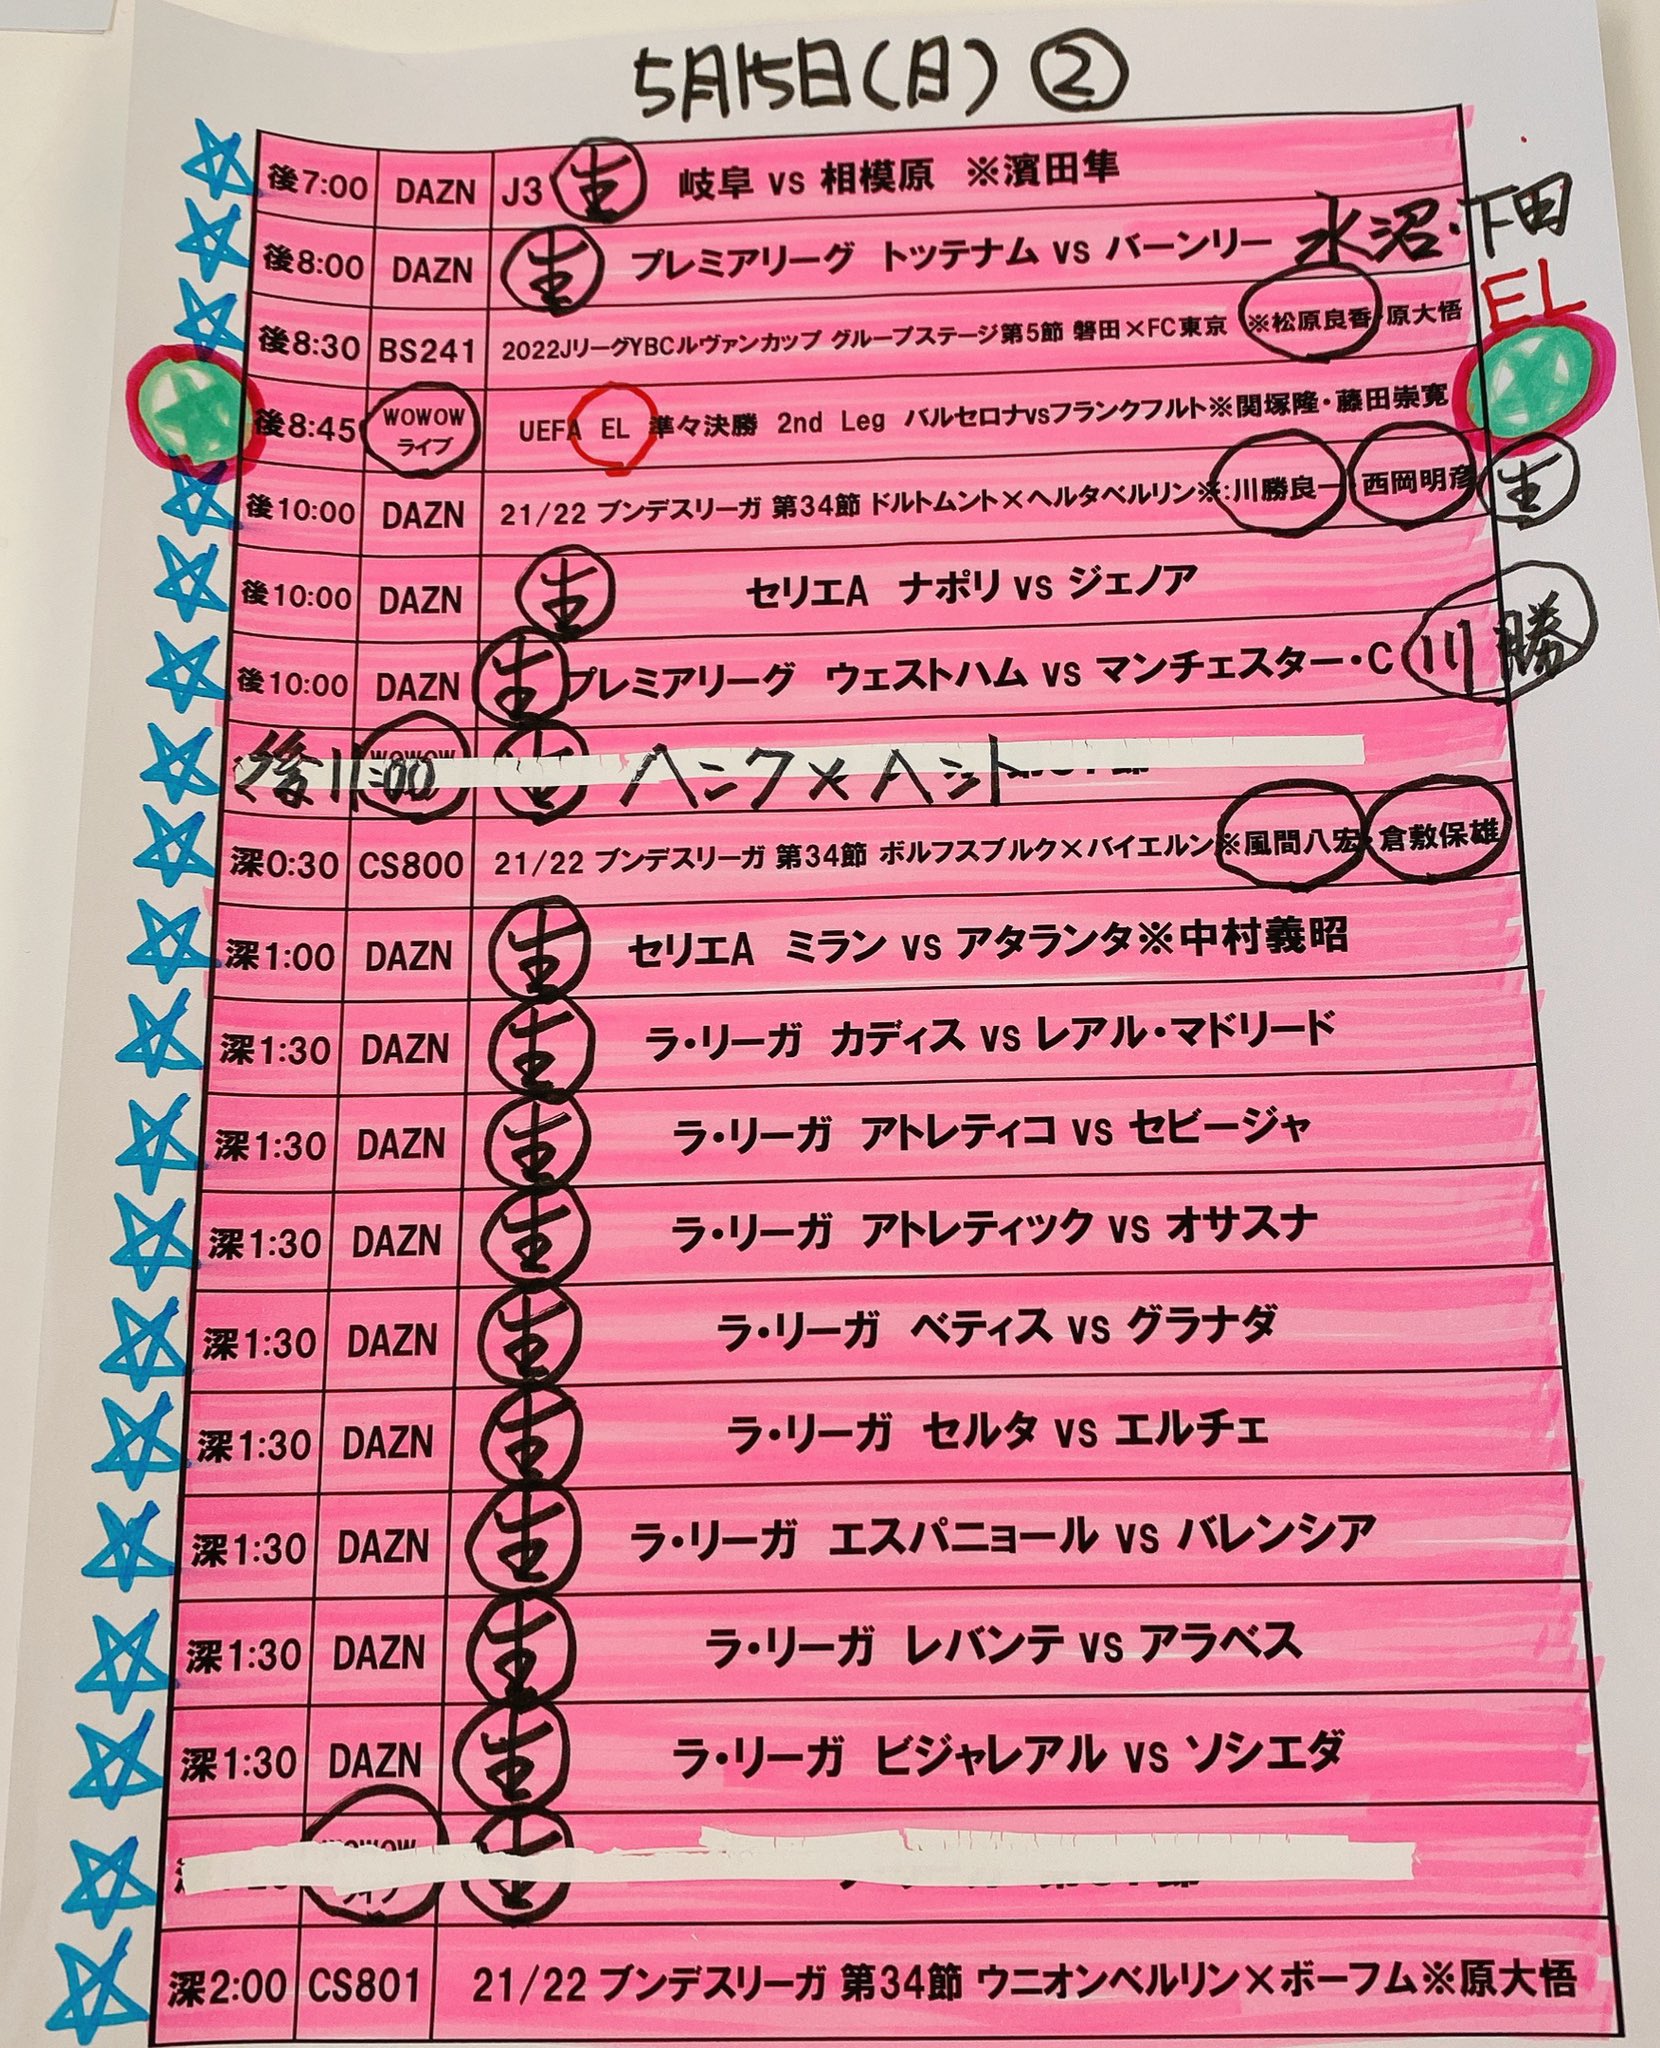 5月15日(日) ②
後7:00 DAZN J3 生 岐阜 vs 相模原 ※濱田隼
後8:00 DAZN 生 プレミアリーグ トッテナム vs バーンリー 水沼・下田
後8:30 BS241 2022JリーグYBCルヴァンカップ グループステージ第5節 磐田×FC東京 ※松原良香・原大悟
EL
後8:45 WOWOWライブ UEFA EL 準々決勝 2nd Leg バルセロナvsフランクフルト※関塚隆・藤田崇寛
後10:00 DAZN 21/22 ブンデスリーガ 第34節 ドルトムント×ヘルタベルリン※:川勝良一 西岡明彦 生
後10:00 DAZN 生 セリエA ナポリ vs ジェノア
後10:00 DAZN 生 プレミアリーグ ウェストハム vs マンチェスター・C 川勝
後11:00 WOWOW 生 ハンク×ハント
深0:30 CS800 21/22 ブンデスリーガ 第34節 ボルフスブルク×バイエルン※風間八宏・倉敷保雄
深1:00 DAZN 生 セリエA ミラン vs アタランタ※中村義昭
深1:30 DAZN 生 ラ・リーガ カディス vs レアル・マドリード
深1:30 DAZN 生 ラ・リーガ アトレティコ vs セビージャ
深1:30 DAZN 生 ラ・リーガ アトレティック vs オサスナ
深1:30 DAZN 生 ラ・リーガ ベティス vs グラナダ
深1:30 DAZN 生 ラ・リーガ セルタ vs エルチェ
深1:30 DAZN 生 ラ・リーガ エスパニョール vs バレンシア
深1:30 DAZN 生 ラ・リーガ レバンテ vs アラベス
深1:30 DAZN 生 ラ・リーガ ビジャレアル vs ソシエダ
WOWOW 生
深2:00 CS801 21/22 ブンデスリーガ 第34節 ウニオンベルリン×ボーフム※原大悟